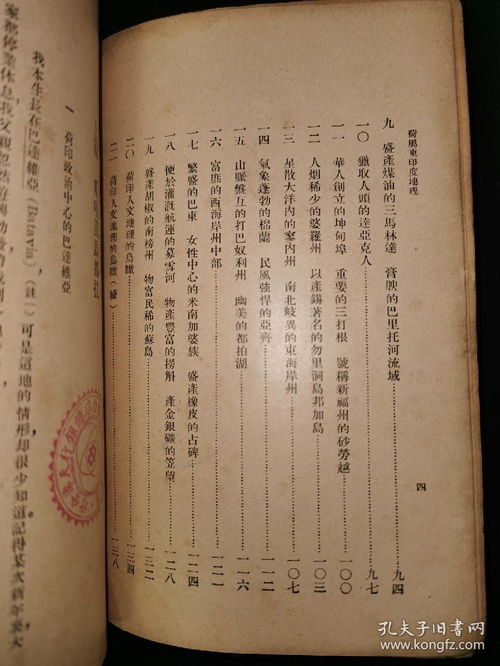 荷屬東印度地理
四
九 盛產煤油的三馬林達 膏腴的巴里托河流域……九四
一〇 獵取人頭的達亞克人……九七
一一 華人創立的坤甸埠 重要的三打根 號稱新福州的砂勞越……一〇〇
一二 人烟稀少的婆羅州 以產錫著名的勿里洞島邦加島……一〇三
一三 星散大洋內的寥內州 南北歧異的東海岸州……一〇七
一四 氣象蓬勃的棉蘭 民風強悍的亞齊……一一二
一五 山脈盤互的打巴奴利州 幽美的都拍湖……一一六
一六 富庶的西海岸州中部……一二一
一七 繁盛的巴東 女性中心的米南加婆族 盛產橡皮的占碑……一二四
一八 便於灌漑航運的慕雪河 物產豐富的撈斛 產金銀礦的笠望……一二八
一九 盛產胡椒的南榜州 物富民稀的蘇島……一三二
二〇 荷印人文地理的鳥瞰……一三四
二一 荷印人文地理的鳥瞰（續）……一三八
一 荷印政治中心的巴達維亞
我本生長在巴達維亞（Batavia），（註一）可是這地的情形却很少知道記得某次新年來大
家都停業休息我父親忽然
孔夫子旧书网
www.kongfz.com